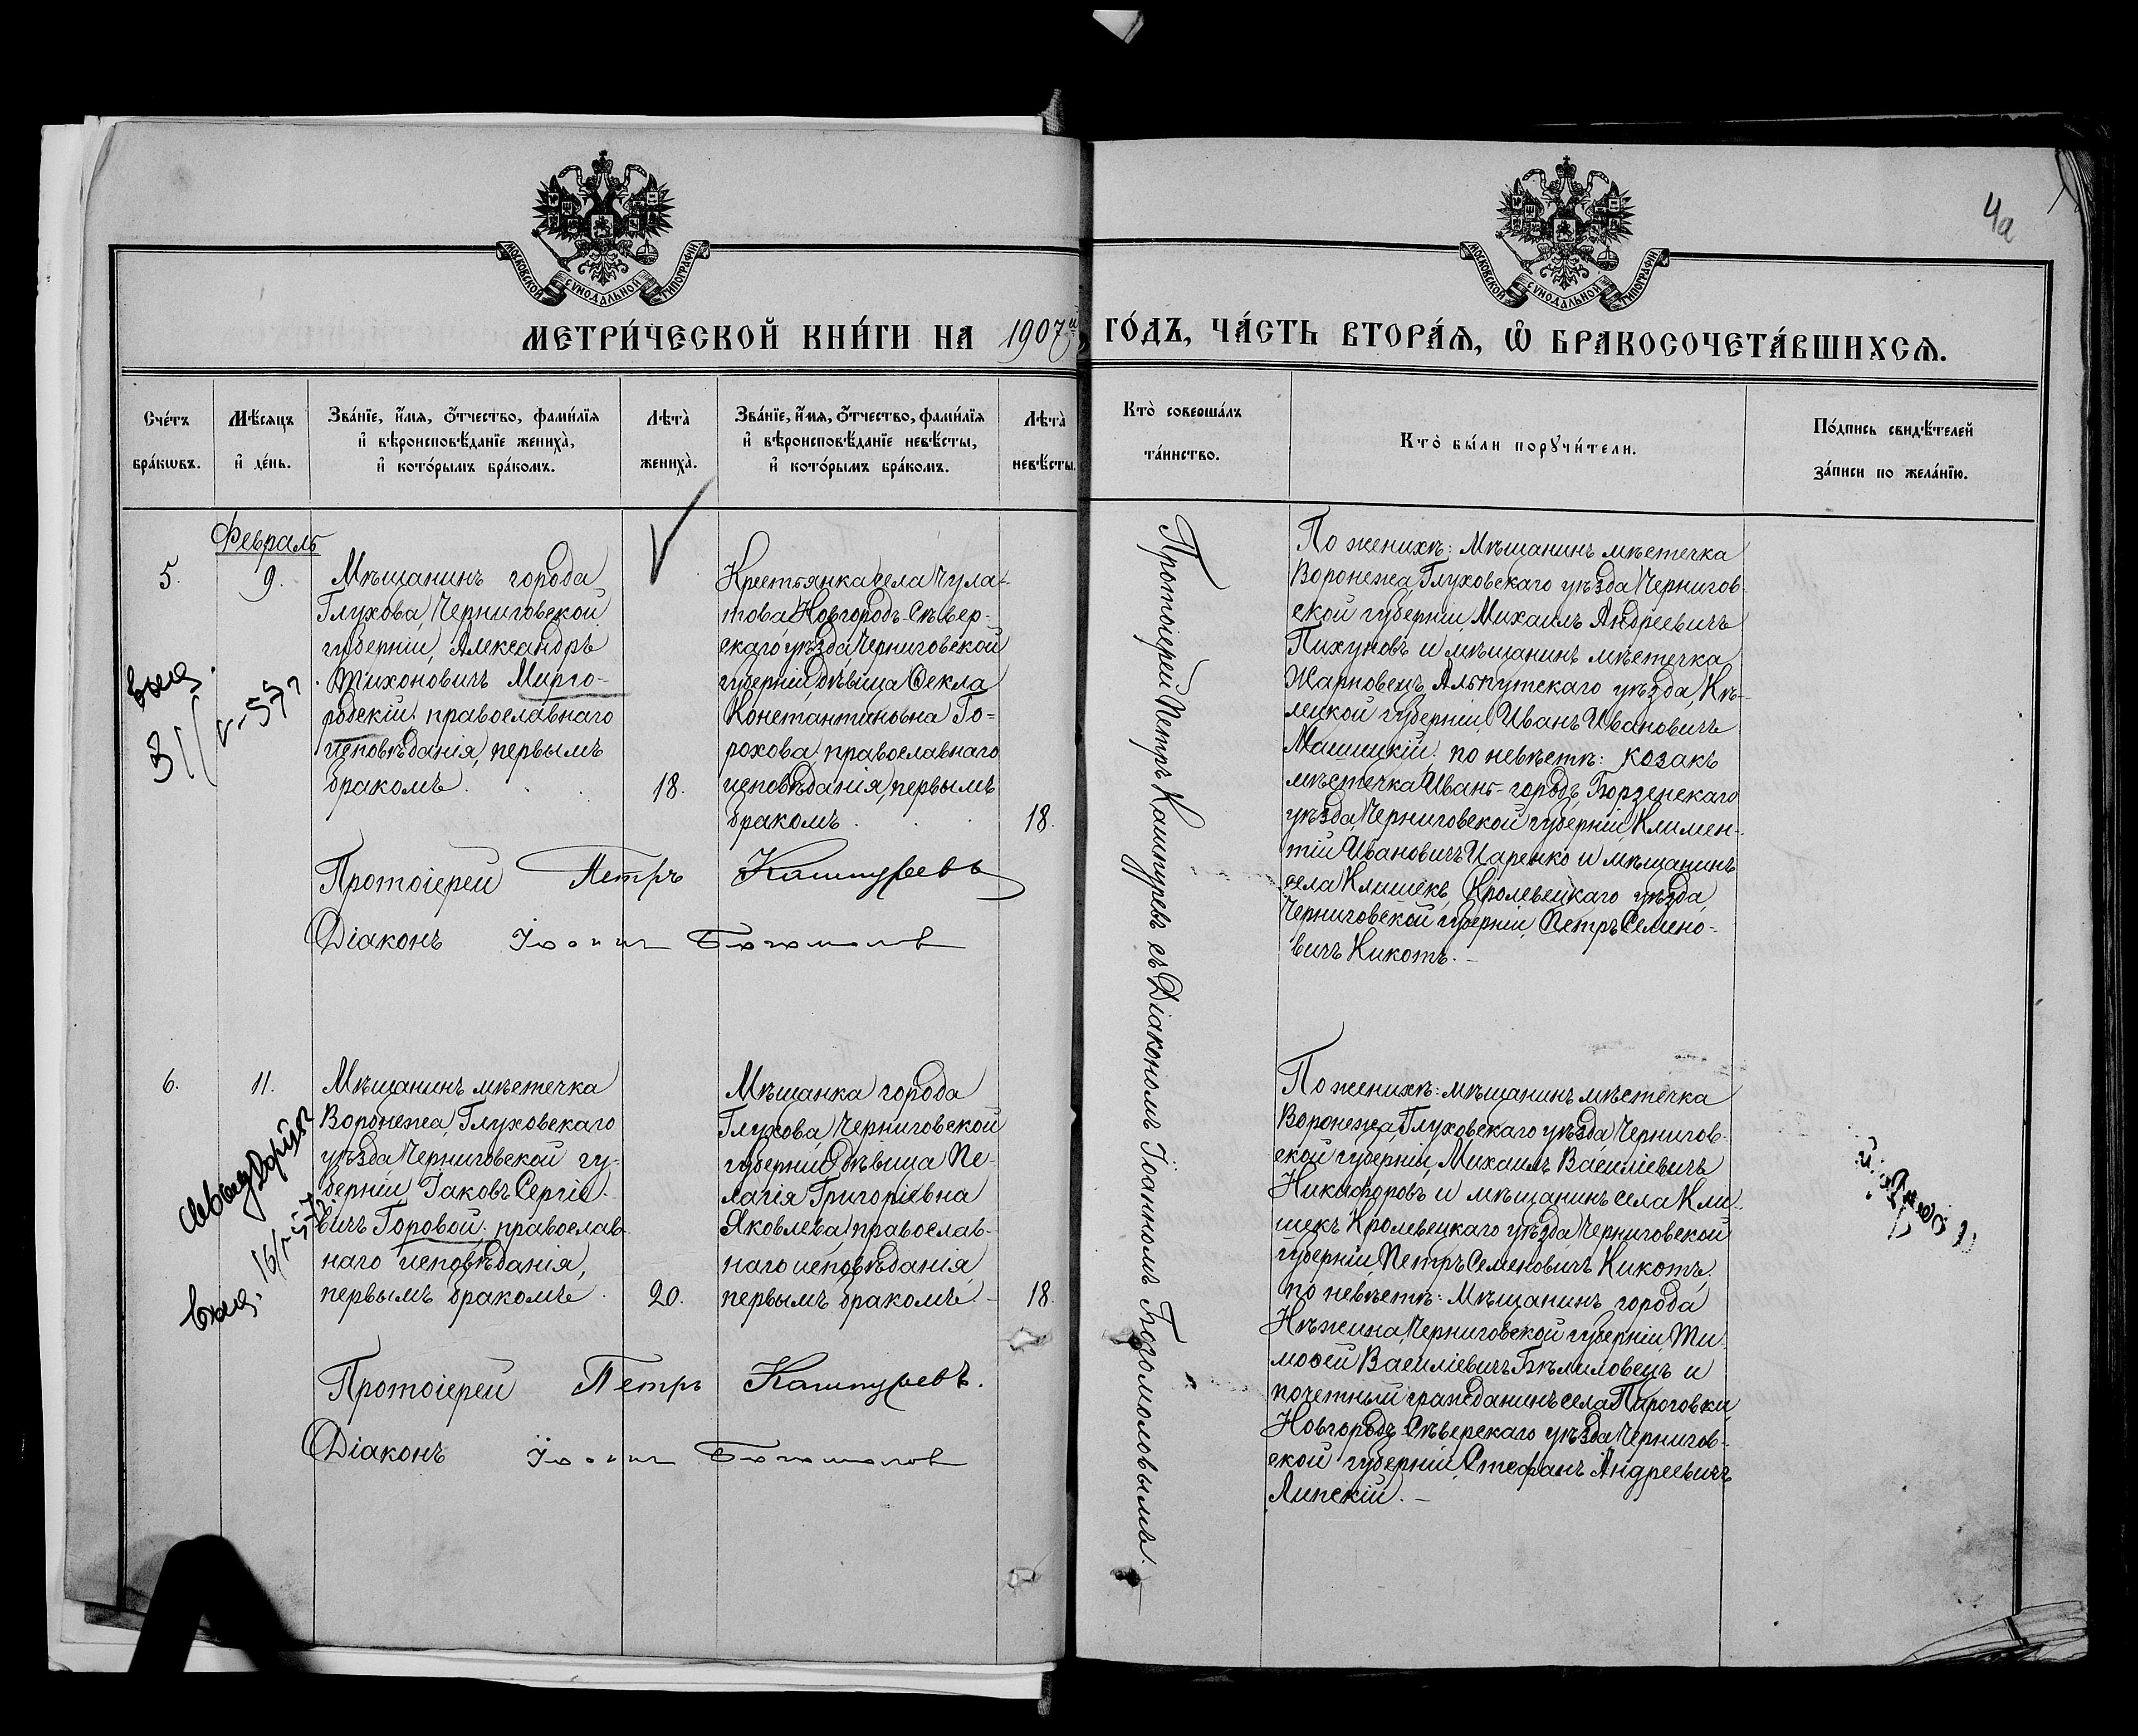 МОСКОВСКОЙ СѴНОДАЛЬНОЙ ТИПОГРАФІИ
МОСКОВСКОЙ СѴНОДАЛЬНОЙ ТИПОГРАФІИ
4а
МЕТРИ́ЧЕСКОЙ КНИ́ГИ НА 1907й
ГО́ДЪ, ЧА́СТЬ ВТОРА́Ѧ, Ѽ БРАКОСОЧЕТА́ВШИХСѦ.
Сче́тъ бра́кѡвъ.
Мѣ́сяцъ и҆ де́нь.
Зва́нїе, и҆́мя, ѻ҆́тчество, фами́лїя
и҆ вѣроисповѣ́данїе жениха̀,
и҆ кото́рымъ бра́комъ.
Лѣ́та̀ жениха̀.
Зва́нїе, и҆́мя, ѻ҆́тчество, фами́лїя
и҆ вѣроисповѣ́данїе невѣ́сты,
и҆ кото́рымъ бра́комъ.
Лѣ́та̀ невѣ́сты.
Кто̀ соверша́лъ
та́инство.
Кто̀ бы́ли порꙋчи́тели.
По́дпись свидѣ́телей
за́писи по жела́нїю.
Февраль
5.
9.
Мѣщанинъ города
Глухова, Черниговской
губерніи, Александръ
Тихоновичъ Мирго-
родскій, православнаго
исповѣданія, первымъ
бракомъ.
18.
Крестьянка села Чула-
това, Новгородъ-Сѣвер-
скаго уѣзда, Черниговской
губерніи, дѣвица Ѳекла
Константиновна Го-
рохова, православнаго
исповѣданія, первымъ
бракомъ.
18.
Протоіерей Петръ Кашпуревъ
Діаконъ Іоаннъ Богомоловъ
Протоіерей Петръ Кашпуревъ съ Діакономъ Іоанномъ Богомоловымъ.
По женихѣ: Мѣщанинъ мѣстечка
Воронежа, Глуховскаго уѣзда, Чернигов-
ской губерніи, Михаилъ Андреевичъ
Пихуновъ и мѣщанинъ мѣстечка
Жарновецъ, Алькутскаго уѣзда, Кѣ-
лецкой губерніи, Иванъ Ивановичъ
по невѣстѣ: козакъ
мѣстечка Иванъ-городъ, Борзенскаго
уѣзда, Черниговской губерніи, Климен-
тій Ивановичъ Царенко и мѣщанинъ
села Клишекъ, Кролевецкаго уѣзда,
Черниговской губерніи, Петръ Семено-
вичъ Кикоть. –
6.
11.
Мѣщанинъ мѣстечка
Воронежа, Глуховскаго
уѣзда Черниговской гу-
берніи, Іаковъ Сергіе-
вичъ Горовой, православ-
наго исповѣданія,
первымъ бракомъ.
20.
Мѣщанка города
Глухова, Черниговской
губерніи, дѣвица Пе-
лагія Григоріевна
Яковлева, православ-
наго исповѣданія,
первымъ бракомъ. –
18.
Протоіерей Петръ Кашпуревъ.
Діаконъ Іоаннъ Богомоловъ
По женихѣ: мѣщанинъ мѣстечка
Воронежа, Глуховскаго уѣзда, Чернигов-
ской губерніи, Михаилъ Василіевичъ
Никифоровъ и мѣщанинъ села Кли-
шекъ Кролевецкаго уѣзда, Черниговской
губерніи, Петръ Семеновичъ Кикоть;
по невѣстѣ: Мѣщанинъ города
Нѣжина, Черниговской губерніи, Ти-
моѳей Василіевичъ Бѣлиловецъ и
почетный гражданинъ села Пироговки,
Новгородъ-Сѣверскаго уѣзда, Чернигов-
ской губерніи, Стефанъ Андреевичъ
Липскій. –